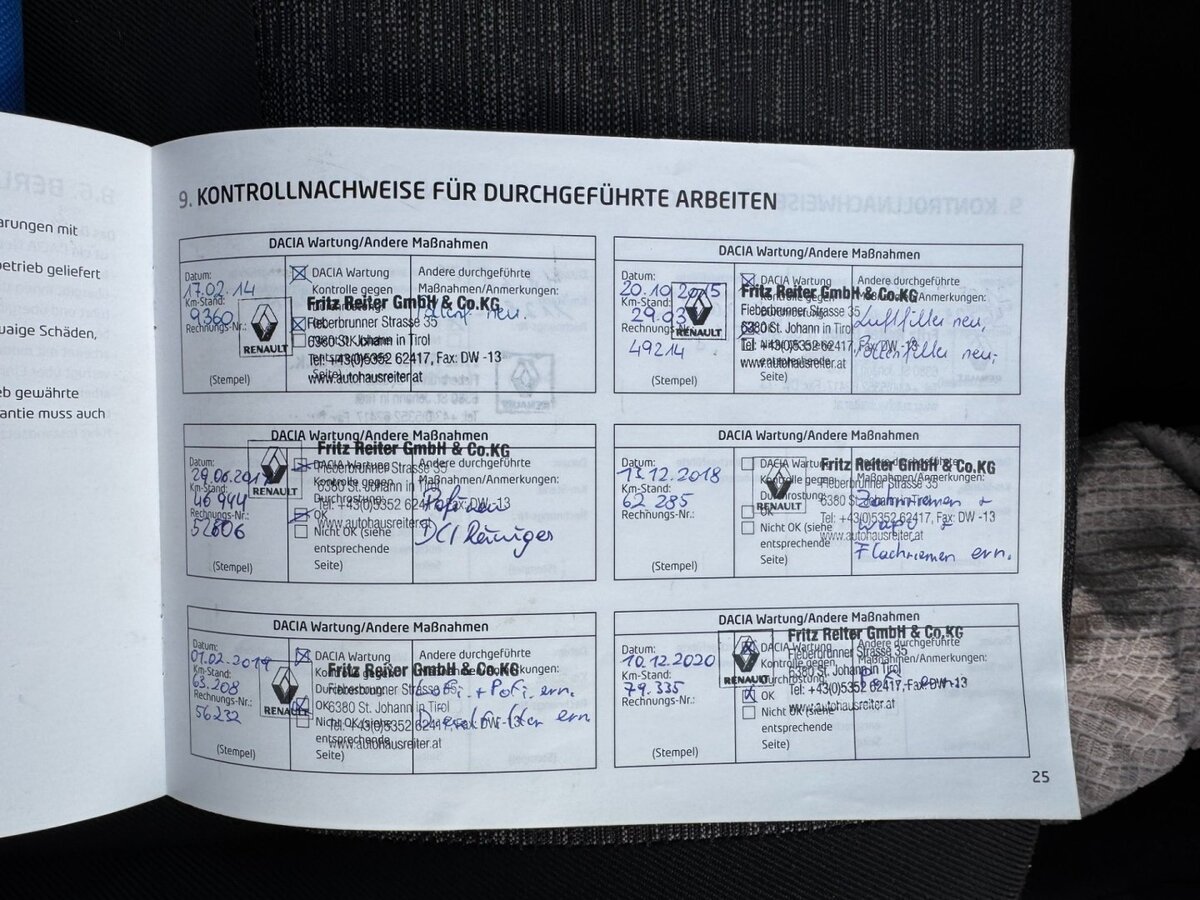 arungen mit
etrieb geliefert
uaige Schäden,
eb gewährte
antie muss auch
9. KONTROLLNACHWEISE FÜR DURCHGEFÜHRTE ARBEITEN
DACIA Wartung/Andere Maßnahmen
Datum:
17.02.14
Km-Stand:
9360
Rechnungs-Nr.:
(Stempel)
RENAULT
DACIA Wartung
Kontrolle gegen
Andere durchgeführte
Maßnahmen/Anmerkungen:
Fritz Reiter GmbH & Co.KG
Fieberbrunner Strasse 35
6380 St. Johann in Tirol
Tel: +43(0)5352 62417, Fax: DW -13
www.autohausreiter.at
Seite)
neu.
DACIA Wartung/Andere Maßnahmen
Datum:
20.10.2015
Km-Stand:
29.03
Rechnungs-Nr.
49214
(Stempel)
RENAULT
DACIA Wartung
Andere durchgeführte
Maßnahmen/Anmerkungen:
Fritz Reiter GmbH & Co.KG
Fieberbrunner Strasse 35
6380 St. Johann in Tirol
Tel: +43(0)5352 62417, Fax: DW -13
www.autohausreiter.at
entsprechende
Seite)
Luftfilter neu,
Pollenfilter neu.
DACIA Wartung/Andere Maßnahmen
Datum:
29.06.201
Km-Stand:
46944
Rechnungs-Nr.:
52606
(Stempel)
RENAULT
DACIA Wartung
Kontrolle gegen
Durchrostung:
OK
Nicht OK (siehe
entsprechende
Seite)
Andere durchgeführte
Maßnahmen/Anmerkungen:
Fritz Reiter GmbH & Co.KG
Fieberbrunner Strasse 35
6380 St. Johann in Tirol
Tel: +43(0)5352 62417, Fax: DW -13
www.autohausreiter.at
Pofi neu
DCI Reiniger
DACIA Wartung/Andere Maßnahmen
Datum:
13.12.2018
Km-Stand:
62 285
Rechnungs-Nr.:
(Stempel)
RENAULT
DACIA Wartung
Kontrolle gegen
Durchrostung:
OK
Nicht OK (siehe
entsprechende
Seite)
Andere durchgeführte
Maßnahmen/Anmerkungen:
Fritz Reiter GmbH & Co.KG
Fieberbrunner Strasse 35
6380 St. Johann in Tirol
Tel: +43(0)5352 62417, Fax: DW -13
www.autohausreiter.at
Zahnriemen +
Wapu +
Flachriemen ern.
DACIA Wartung/Andere Maßnahmen
Datum:
01.02.2019
Km-Stand:
63.208
Rechnungs-Nr.:
56232
(Stempel)
RENAULT
DACIA Wartung
Kontrolle gegen
Durchrostung:
OK
Nicht OK (siehe
entsprechende
Seite)
Andere durchgeführte
Maßnahmen/Anmerkungen:
Fritz Reiter GmbH & Co.KG
Fieberbrunner Strasse 35
6380 St. Johann in Tirol
Tel: +43(0)5352 62417, Fax: DW -13
www.autohausreiter.at
Lufi + Pofi ern.
Dieselfilter ern.
DACIA Wartung/Andere Maßnahmen
Datum:
10.12.2020
Km-Stand:
79.335
Rechnungs-Nr.:
(Stempel)
RENAULT
DACIA Wartung
Kontrolle gegen
Durchrostung:
OK
Nicht OK (siehe
entsprechende
Seite)
Andere durchgeführte
Maßnahmen/Anmerkungen:
Fritz Reiter GmbH & Co.KG
Fieberbrunner Strasse 35
6380 St. Johann in Tirol
Tel: +43(0)5352 62417, Fax: DW -13
www.autohausreiter.at
Pofi ern.
25